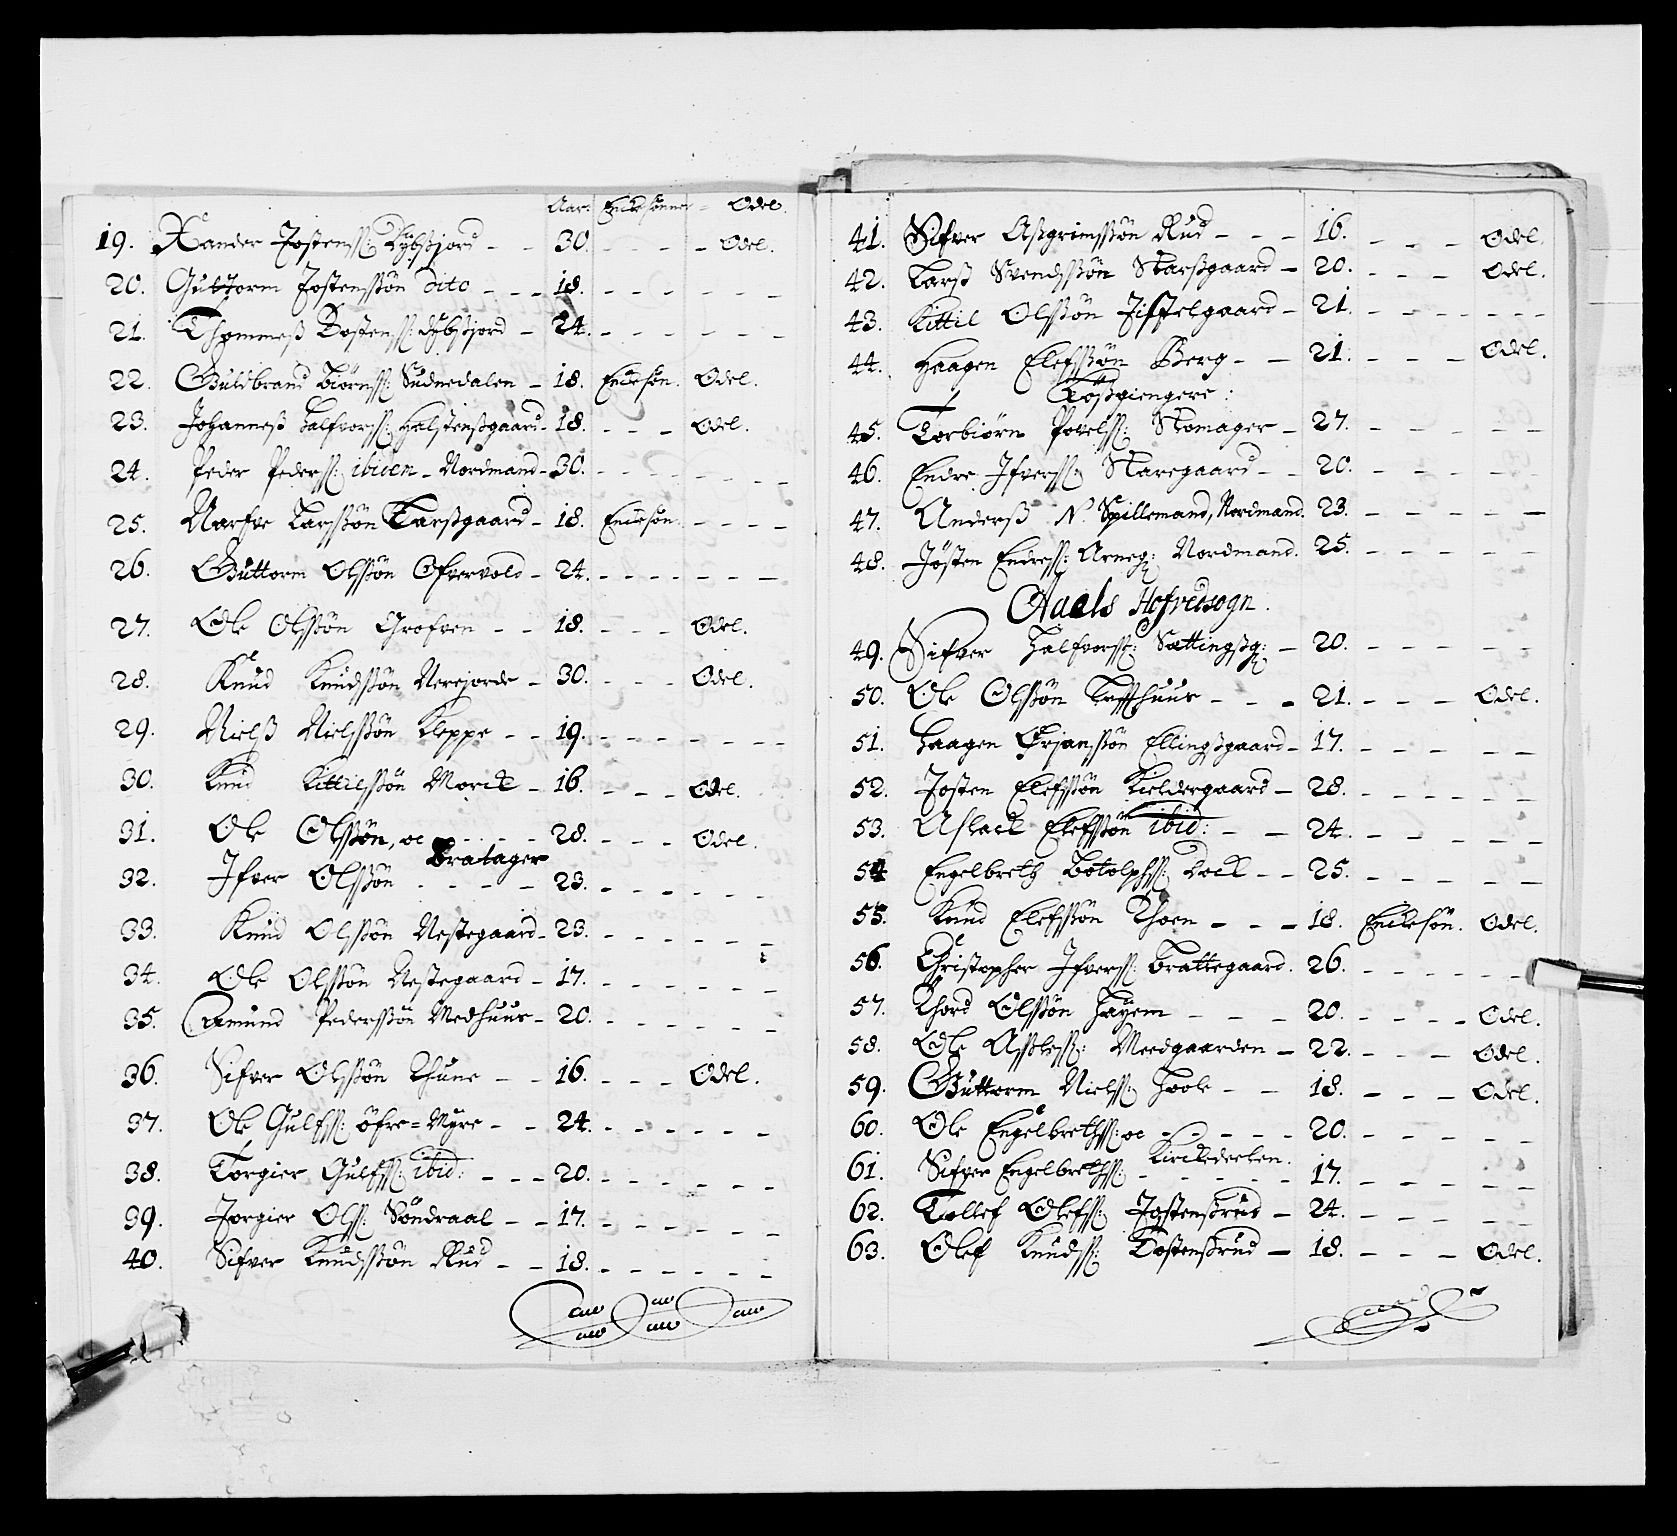 Aar: Enckesönner - Odel.
19. Xander Jostenss: Dybssjord - - 30. - - - - Odel.
20. Guttorm Jostenssön dito - - - 18. - - - - - -
21. Thommess Bostenss: dybssjord - 24. - - - - - -
22. Guldbrand Biörnss: Sudnedalen - 18. Enckesön. Odel.
23. Johanness Halfvorss: Halstenssgaard - 18. - - - Odel.
24. Peder Pederss: ibiden - Nordmand - 30. - - - - - -
25. Narfve Larssön Larssgaard - 18. Enckesön. - - - -
26. Guttorm Olssön Ofvervold - 24. - - - - - - -
27. Ole Olssön Grofven - - 18. - - - - Odel.
28. Knud Knudssön Nerejorde - 30. - - - Odel.
29. Nielss Nielssön Kleppe - - 19. - - - - - - -
30. Knud Kittilssön Morck - 16. - - - Odel.
31. Ole Olssön, oc - - - - 28. - - - Odel.
Bratager
32. Ifver Olssön - - - - - 23. - - - - - -
33. Knud Olssön Nestegaard - 23. - - - - - -
34. Ole Olssön Nestegaard - 17. - - - - - -
35. Amund Pederssön Medhuus - 20. - - - - - -
36. Sifver Olssön Thune - - 16. - - - Odel.
37. Ole Gulfss: öfre=Myre - - 24. - - - - - -
38. Torgier Gulfss: ibid: - - - 20. - - - - - -
39. Jorgier Olss: Söndraal - - 17. - - - - - -
40. Sifver Knudssön Rud - - 18. - - - - - -
41. Sifver Assgrimssön Rud - - - 16. - - - Odel.
42. Larss Svendssön Skarssgaard - 20. - - - Odel.
43. Kittil Olssön Jistelgaard - 21. - - - - - - -
44. Haagen Elefssön Berg - - 21. - - - Odel.
Lössgiengere:
45. Torbiörn Povelss: Skomager - 27. - - - - -
46. Endre Ifverss: Skaregaard - - 20. - - - - -
47. Anderss N. Spillemand, Nordmand. 23. - - - - -
48. Jösten Endress: Arneg: Nordmand. 25. - - - - -
Aaels Hofvetsogn.
49. Sifver Halfvorss: Sættingssg: - 20. - - - - -
50. Ole Olssön Tuffthuus - - - 21. - - - Odel.
51. Haagen Örjanssön Ellingssgaard - 17. - - - - -
52. Josten Elefssön Kieldergaard - 28. - - - - - -
53. Aslack Elefssön ibid: - - 24. - - - - - -
54 Engelbreth Botolphss: Lock - - 25. - - - - -
55. Knud Elefssön Thoen - - - 18. Enckesön. Odel.
56. Christopher Ifverss: Brattegaard. 26. - - - - - -
57. Thord Olssön Hayem - - - 20. - - - - - Odel.
58. Ole Assless: Meedgaarden - 22. - - - Odel.
59. Guttorm Nielss: Hoole - - 18. - - - Odel.
60. Ole Engelbrethss: oc - - - - - 20. - - - - -
Kirckedeelen.
61. Sifver Engelbrethss: - - - - - 17. - - - - -
62. Tollef Olefss: Jostenssrud - 24. - - - - -
63. Olef Knudss: Tostenssrud - 18. - - - Odel.